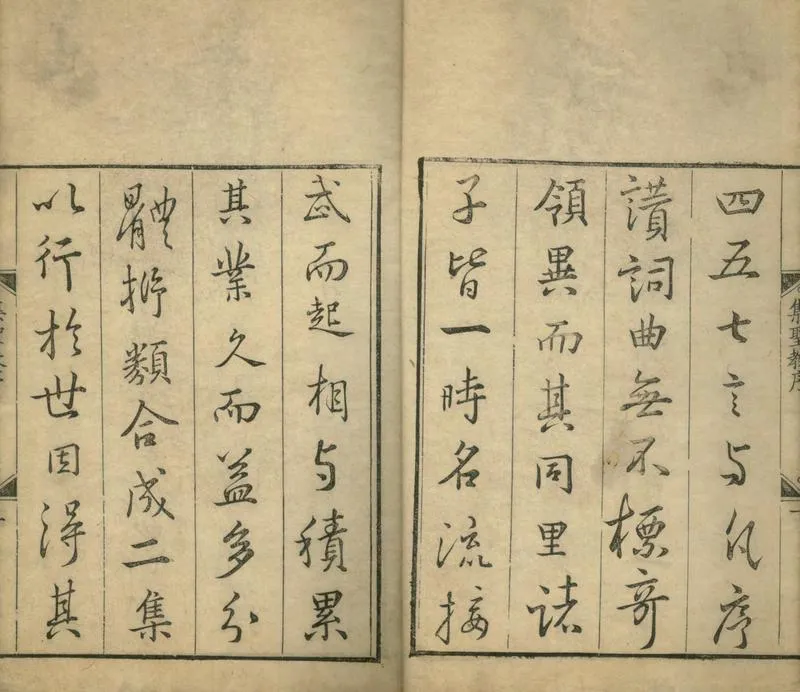 集聖教序
一
四五七言与凡序
讚詞曲無不標奇
領異而其同里諸
子皆一時名流接
武而起相与積累
其業久而益多分
體類合成二集
以行於世因得其